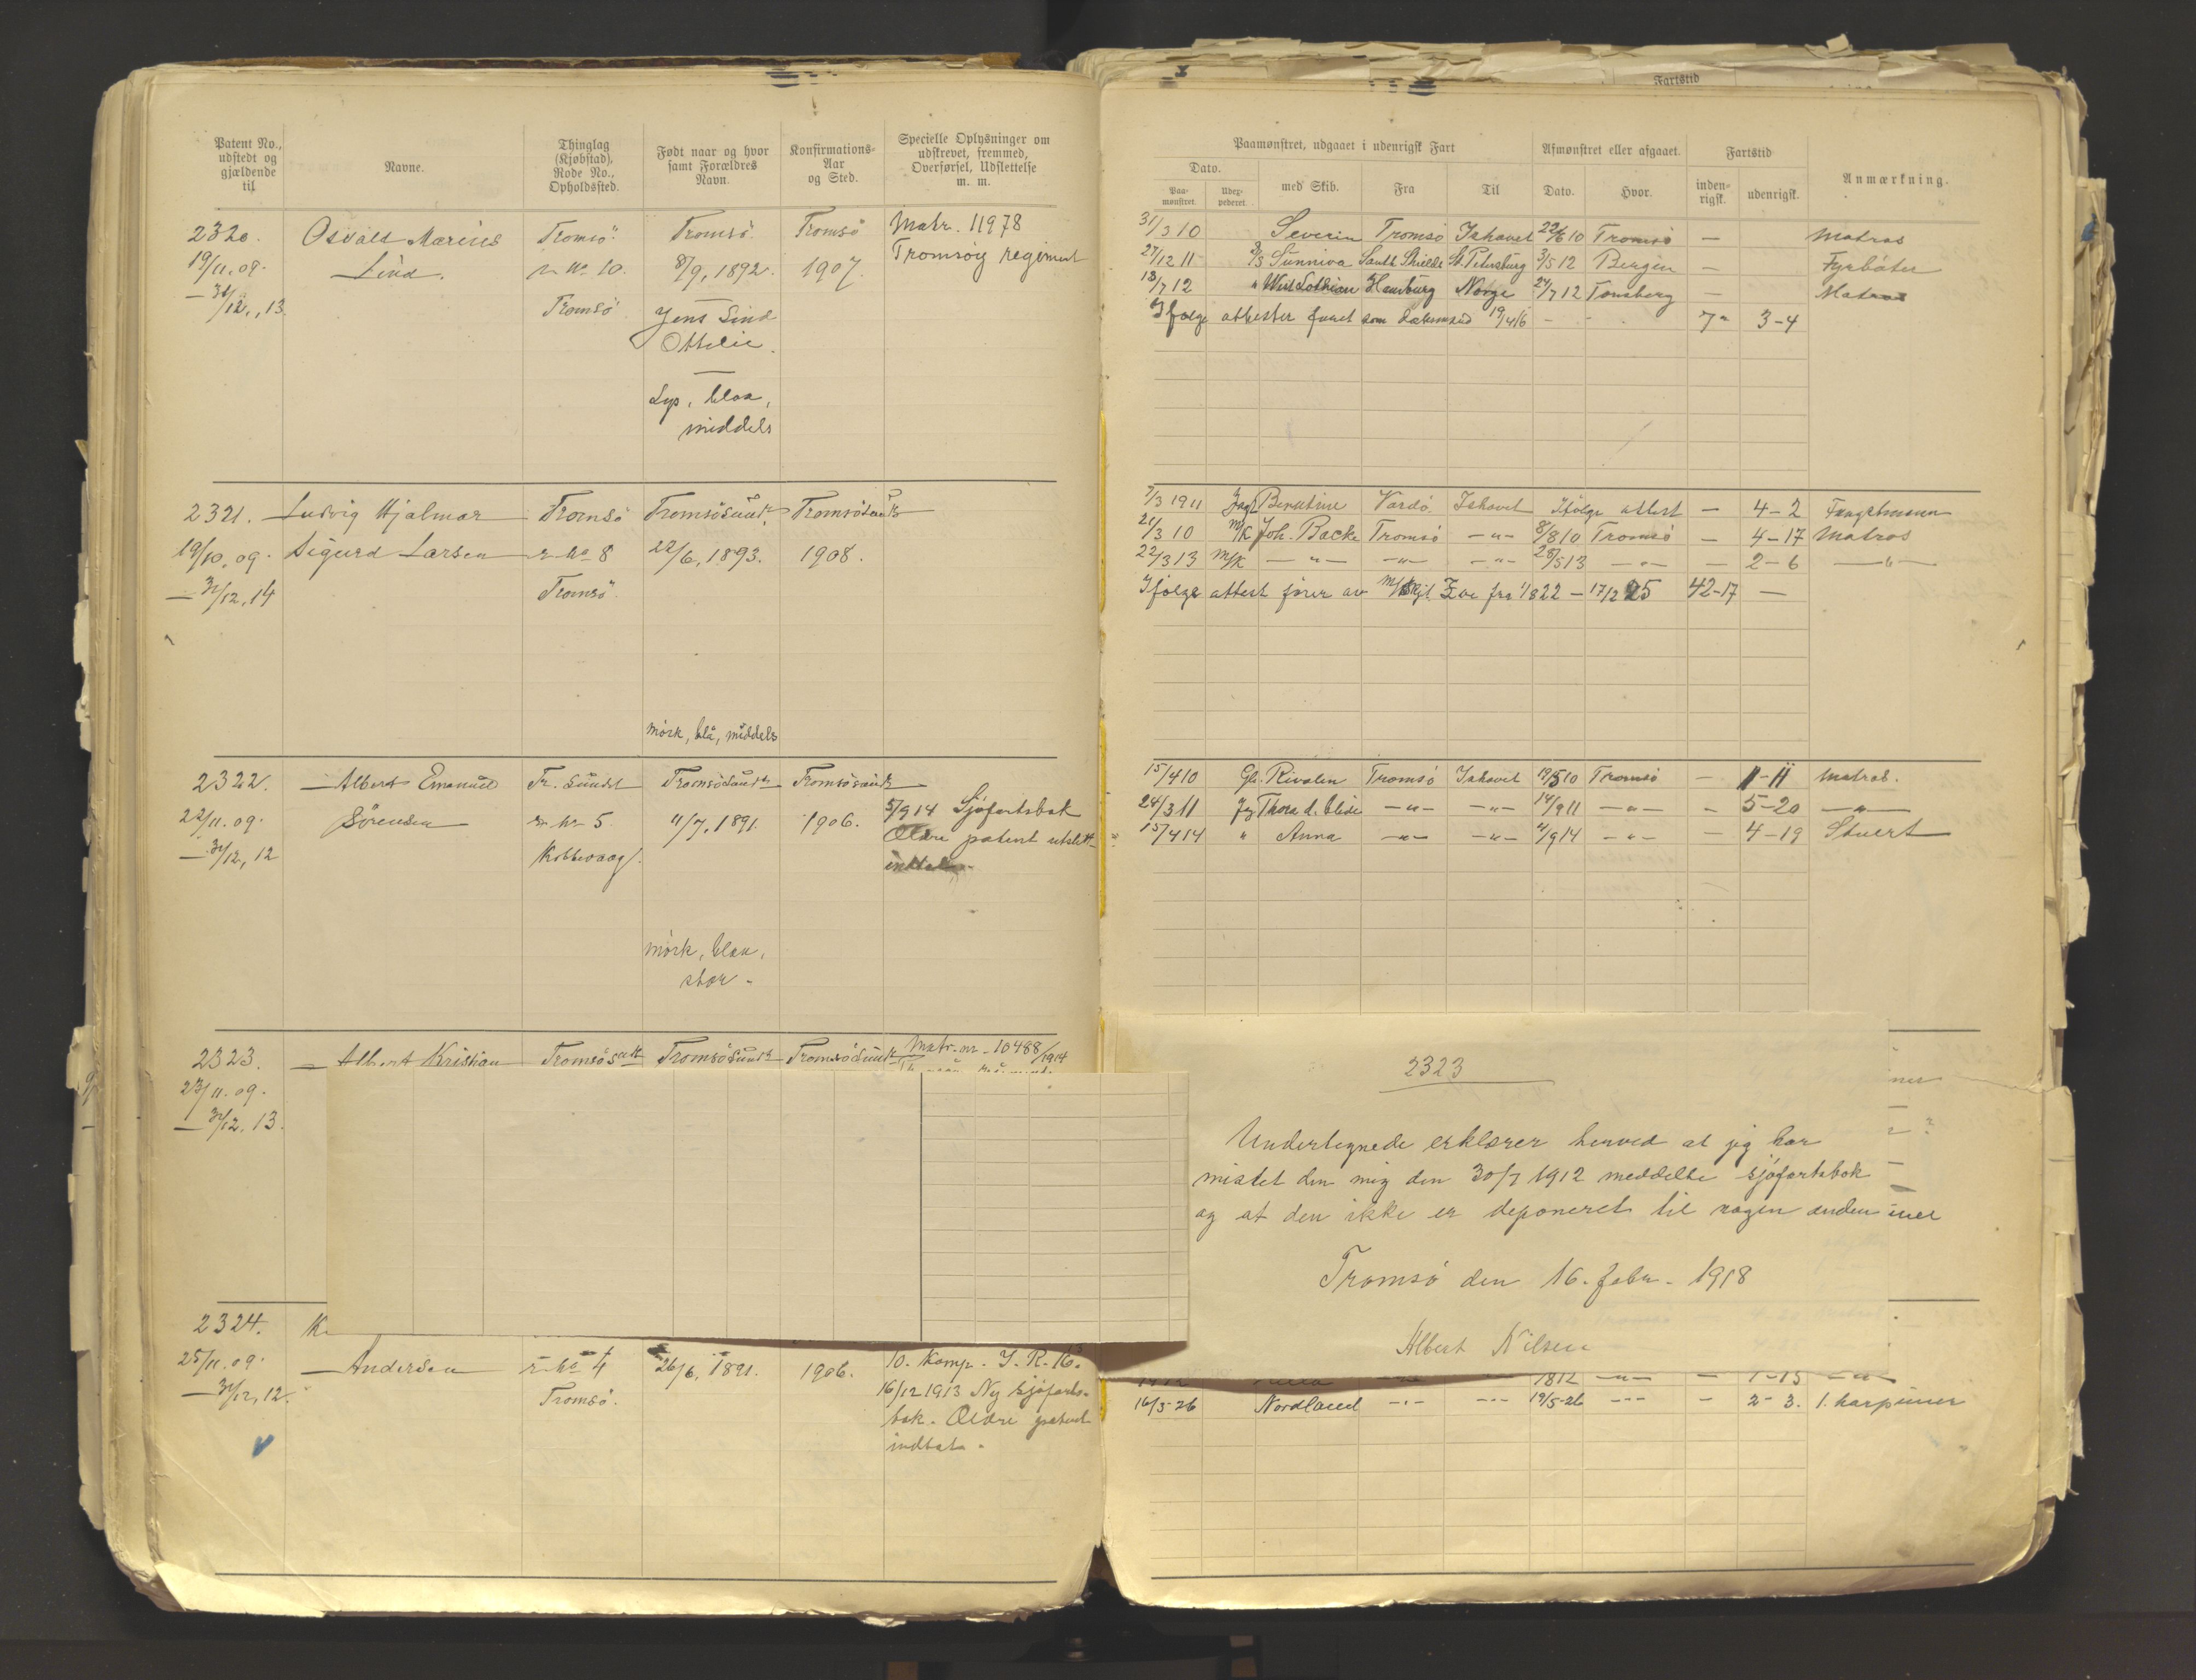 Fartstid
Patent No., udstedt og gjældende til
Navne.
Thinglag (Kjøbstad), Rode No., Opholdssted.
Født naar og hvor samt Forældres Navn.
Konfirmations-Aar og Sted.
Specielle Oplysninger om udskrevet, fremmed, Overførsel, Udslettelse m. m.
2320. Osvald Marius Tromsö. Tromsö. Tromsö Matr. 11978
19/11.09. Lind. r. no 10. 8/9, 1892. 1907. Tromsøig regiment
— 31/12, 13. Tromsö.
Jens Lind
Ottilie.
Lys, blaa,
middels
2321. Ludvig Hjalmar Tromsö Tromsösundt. Tromsösundt
19/10, 09. Sigurd Larsen r. no 8 22/6, 1893. 1908.
— 31/12, 14 Tromsö.
mörk, blå, middels
2322. Albert Emanuel Tr. sundet Tromsösundt Tromsösundt
22/11. 09. Sörensen r. nr 5. 11/7, 1891. 1906. 5/9 14 Sjøfartsbok
— 31/12, 12 Kobbevaag. Ældre patent utslett
mörk, blaa,
stor.
2323. Albert Kristian Tromsösundt Tromsösundt Tromsösundt Matr. nr. 10488/1914
23/11. 09.
— 31/12. 13.
2324. K
25/11. 09. Andersen r. no 4 26/6, 1891. 1906. 10. Komp. I. R. 16.
— 31/12, 12. Tromsö. 16/12 1913 Ny sjøfarts-
bok. Ældre patent
indtat.
Paamønstret, udgaaet i udenrigsk Fart
Afmønstret eller afgaaet.
Fartstid
Anmærkning.
Dato.
Paa-mønstret.
Udex-pederet.
med Skib.
Fra
Til
Dato.
Hvor.
inden-rigsk.
udenrigsk.
31/3 10 Severin Tromsö Ishavet 22/6 10 Tromsö — Matros
27/12 11 8/3 Sunniva South Shields St. Petersburg 3/5 12 Bergen — Fyrböter
18/7 12 " West Lothian Hamburg Norge 24/7 12 Tönsberg — Matros
Ifølge attester faret som 19/4 16 - - 7" 3-4
7/3 1911 Jagt Berntine Vardö. Ishavet Ifölge attest — 4-2 Fangstmann
21/3 10 M/K Joh. Backe Tromsö —"— 8/8 10 Tromsö — 4-17 Matros
22/3 13 M/K —"— —"— —"— 28/5 13 —"— — 2-6 —"—
Ifölge attest förer av M/Skjt. fra 1/8 22 — 17/2 25 42-17 —
15/4 10 Gl. Rivalen Tromsö Ishavet 19/5 10 Tromsö — 1-11 Matros.
24/3 11 Jg Thora —"— —"— 14/9 11 —"— — 5-20 —"—
15/4 14 " Anna —"— —"— 4/9 14 —"— — 4-19 Stuert
2323
Undertegnede erklærer herved at jeg har
mistet den mig den 30/7 1912 meddelte sjøfartsbok
og at den ikke er deponeret til nogen anden
Tromsö den 16. febr. 1918
Albert Nilsen
1812 —"— — 1-15 —"—
16/3-26 Nordland —"— —"— 19/5-26 —"— — 2-3. 1. harpuner